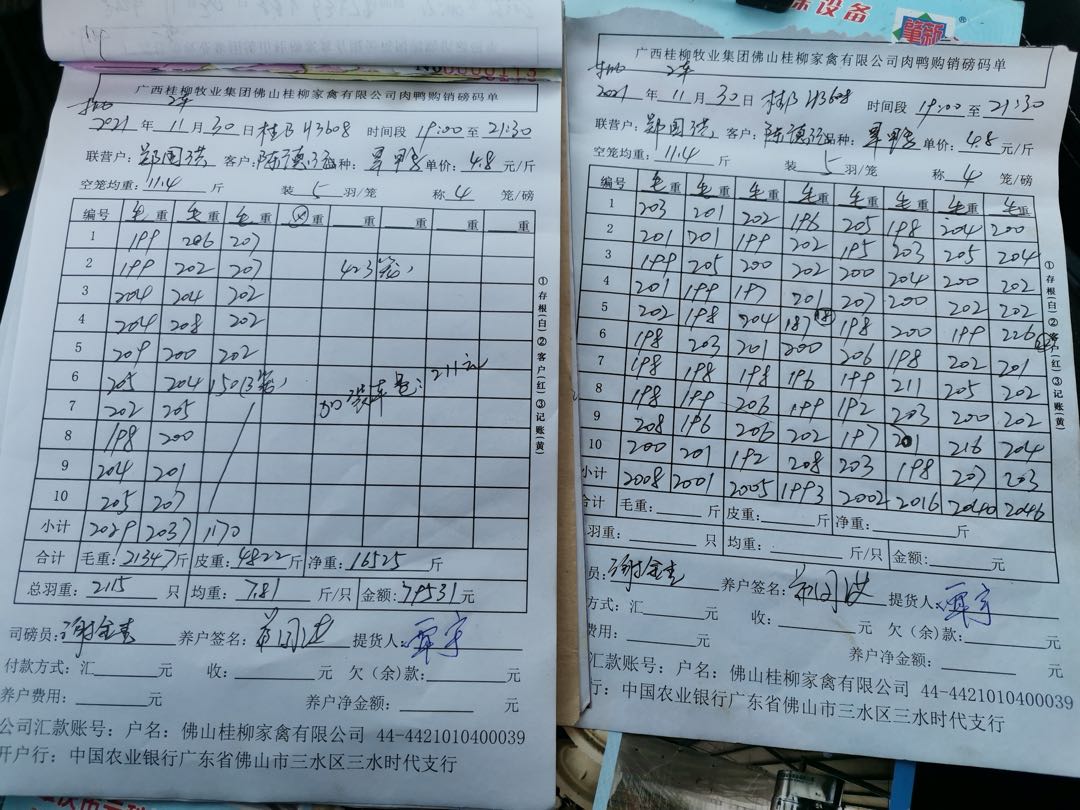 No0000173
广西桂柳牧业集团佛山桂柳家禽有限公司肉鸭购销磅码单
2车
2021年11月30日 桂 H3608 时间段 19:00至21:30
联营户: 郑国洪 客户: 陈德 品种: 单价: 4.8元/斤
空笼均重: 11.4斤 装5羽/笼 称4笼/磅
编号 毛重 毛重 毛重 重 重 重 重 重
1 199 206 207
2 199 202 207 423笼
3 204 204 202
4 204 208 202
5 209 200 202
6 205 204 150(3笼) 加装车包: 211元
7 202 205
8 198 200
9 204 201
10 205 207
小计 2029 2037 1170
合计 毛重: 21347斤 皮重: 4822斤 净重: 16525斤
总羽重: 2115只 均重: 7.81斤/只 金额: 79531元
司磅员: 谢金 养户签名: 提货人: 覃宇
付款方式: 汇 元 收: 元 欠(余)款: 元
养户费用: 元 养户净金额: 元
公司汇款账号: 户名: 佛山桂柳家禽有限公司 44-4421010400039
开户行: 中国农业银行广东省佛山市三水区三水时代支行
①存根(白)②客户(红)③记账(黄)
设备
肇新®
广西桂柳牧业集团佛山桂柳家禽有限公司肉鸭购销磅码单
2车
2021年11月30日 桂 H3608 时间段 19:00至21:30
联营户: 郑国洪 客户: 陈德 品种: 单价: 4.8元/斤
空笼均重: 11.4斤 装5羽/笼 称4笼/磅
编号 毛重 毛重 毛重 毛重 毛重 毛重 毛重 毛重
1 203 201 202 196 205 198 204 200
2 201 201 199 202 195 203 205 204
3 199 205 200 202 200 204 200 202
4 201 199 197 201 207 200 202 202
5 202 198 204 187 198 200 199 226
6 198 203 201 200 206 198 202 201
7 198 198 198 196 199 211 205 202
8 198 199 206 199 192 203 200 202
9 208 196 206 202 197 201 216 204
10 200 201 192 208 203 198 207 203
小计 2008 2001 2005 1993 2002 2016 2040 2046
合计 毛重: 斤 皮重: 斤 净重: 斤
羽重: 只 均重: 斤/只 金额: 元
员: 谢金 养户签名: 提货人: 覃宇
方式: 汇 元 收: 元 欠(余)款: 元
费用: 元 养户净金额: 元
汇款账号: 户名: 佛山桂柳家禽有限公司 44-4421010400039
行: 中国农业银行广东省佛山市三水区三水时代支行
①存根(白)②客户(红)③记账(黄)